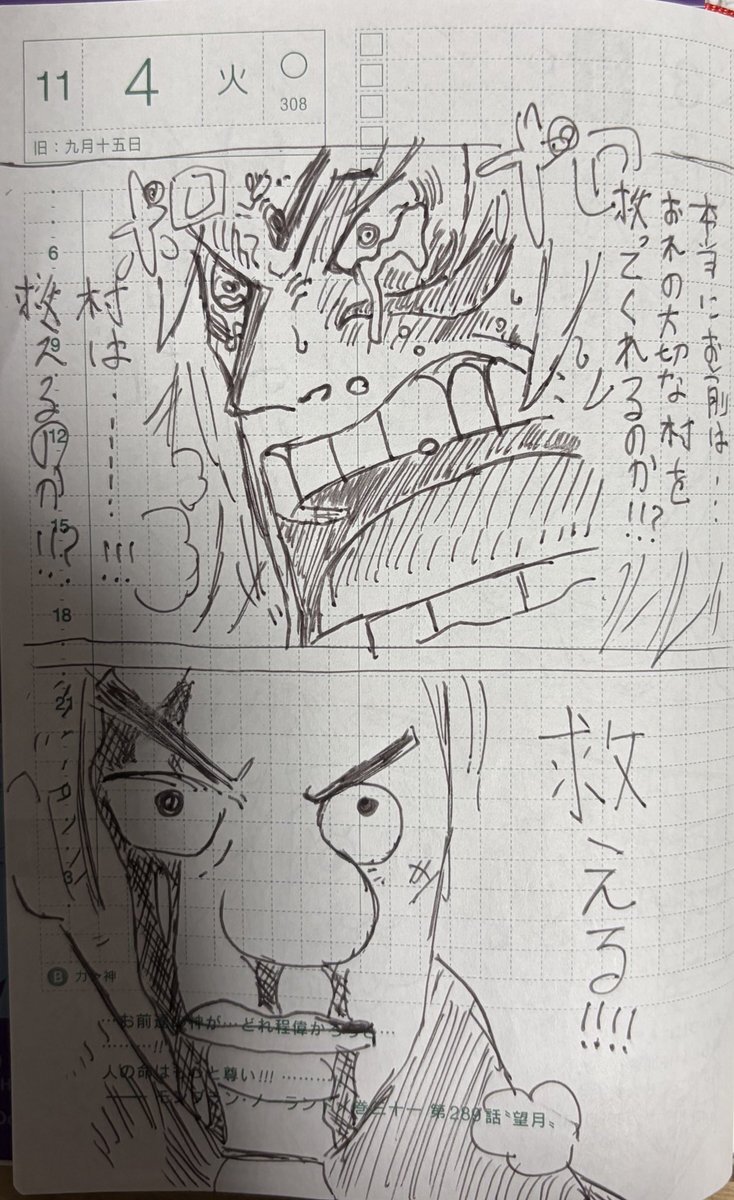 11 4 火 308
旧：九月十五日
本当にお前は・・
おれの大切な村を
救ってくれるのか!!?
村は・・・・・・・・!!!
救えるのか!!?
6
9
12
15
18
21
3
救える!!!!
…お前達の神が…どれ程偉かろうと…
………!!
人の命はもっと尊い!!! …………
モンブラン・ノーランド／巻三十一 第289話“望月”